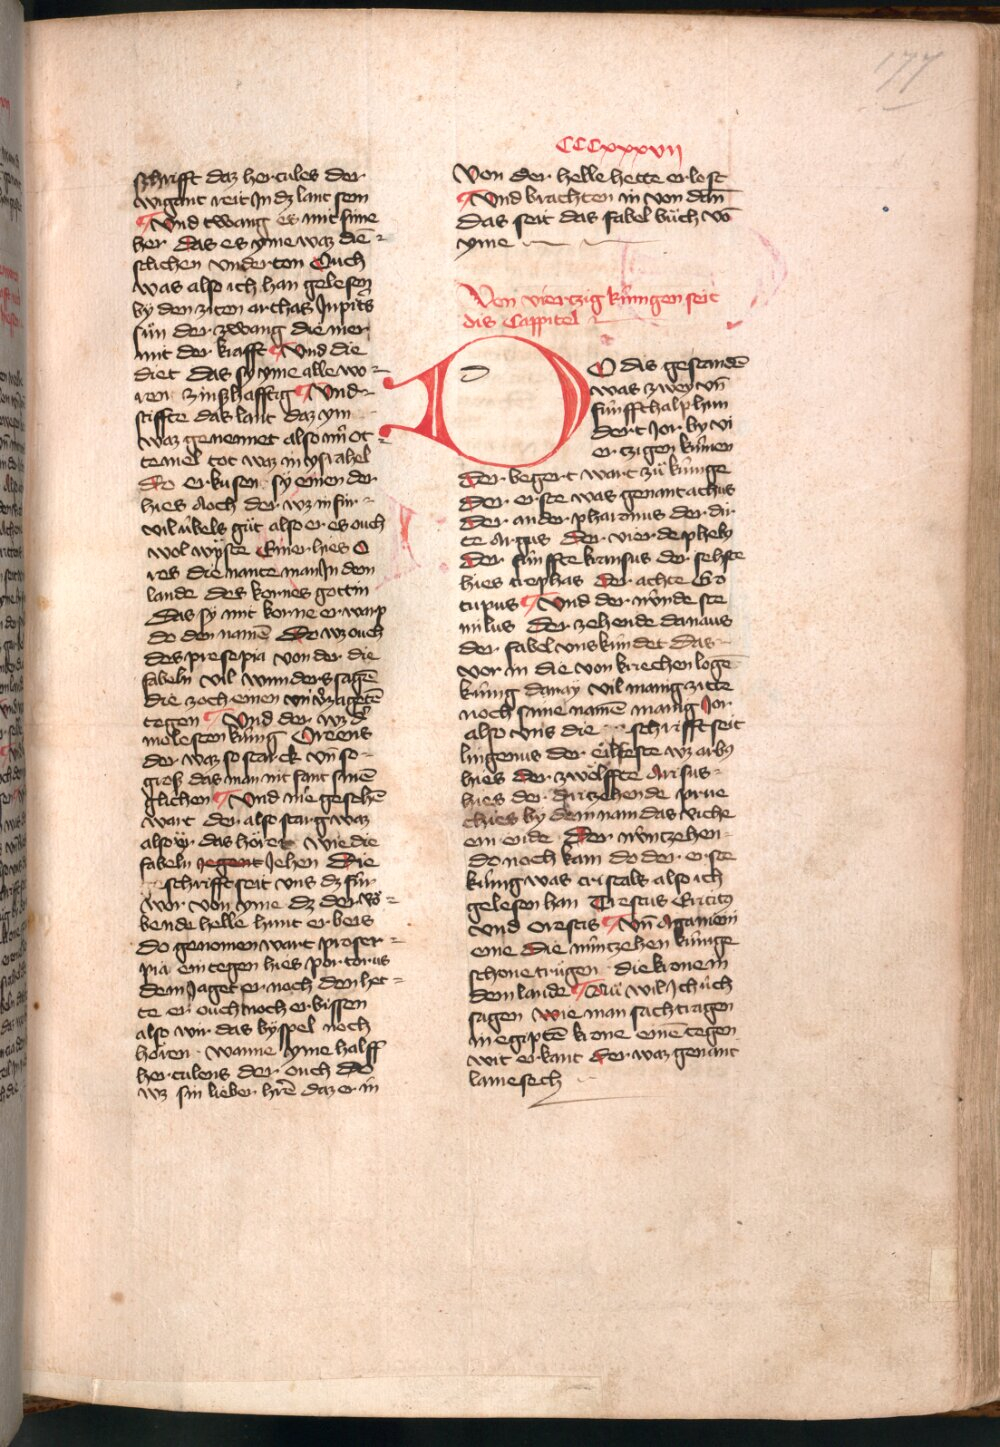 177
CCCxxxvii
schrifft daz hercules der
wigant reit Jn dz lant sein
¶ Vnd twang es mit sime
her Das es yme waz die-
stlichen vnderton Ouch
was also ich han gelesen
by den ziten archas Jupits
sün der zwang die mer
mit der krafft ¶ Vnd die
diet das sy yme alle wo-
ren zinßhafftig ¶ Vnd
stiffte das lant daz ym
waz genennet also nu ot-
temel tot waz in ysrahel
do erkusen sy einen der
hies Aoch der wz in für-
vil übels güt also er es ouch
wol wyste Einer hies O
res die nante man Jn dem
lande des kornes gottin
Das sy mit korne erwarp
do den namē Do wz ouch
des presepia von der die
fabeln vil wunders sagē
die zoch einen vnv̄zageten
tegen ¶ Vnd der wz dē
molesten künig Oreens
der waz so starck vn̄ so-
groß das man nit fant sinē
glichen ¶ Vnd nie geschē
wart der also starg waz
also er das höret wie die
fabeln Jehen Die
schrifft seit vns dz für
wor von yme dz der wö-
bende helle hunt erbeis
do genomen wart proser-
pia ein tegen hies portorus
dem Jaget er noch den het-
te er ouch noch erbissen
also wir das byspel noch
hören wanne yme halff
herculens der ouch do
wz sin lieber hrē daz er in
von der helle hette erlost
¶ Vnd brachten in von dan̄
das seit das fabel büch vō
yme
Von viertzig künigen seit
dis Cappitel
DO dis gestanden
was zwey vn̄
fünffthalp hun
dert Jor by vi
erczigen künen
der begert wart zü künige
der erste was genant achus
der ander pharonus der dir
te Argus der vierde pheby
der fünffte kransus der sehste
hies trephas der achte Bo
tupus ¶ Vnd der nünde ste
nilus der zehende danaus
der fabel vns kündet das
vor in die von kriechen logē
künig danay vil manig zitte
noch sime namē manig Jor
also vns die schrifft seit
lingenus der eilfeste wz arby
hies der zwölffte Arsus-
hies der dirtzehende prue
thies by dem nam das riche
ein ende der nüntzehen-
do noch kam do der erste
künig was cristals also ich
gelesen han Trestus Erictz
vnd Orestis ¶ Vn̄ Agamem
eme die nüntzehen künige
schone trügen die krone in
dem lande ¶ Nü wil Ich üch
sagen wie man sach tragen
in egiptē krone einē tegen
wit erkant der waz genant
lamesech